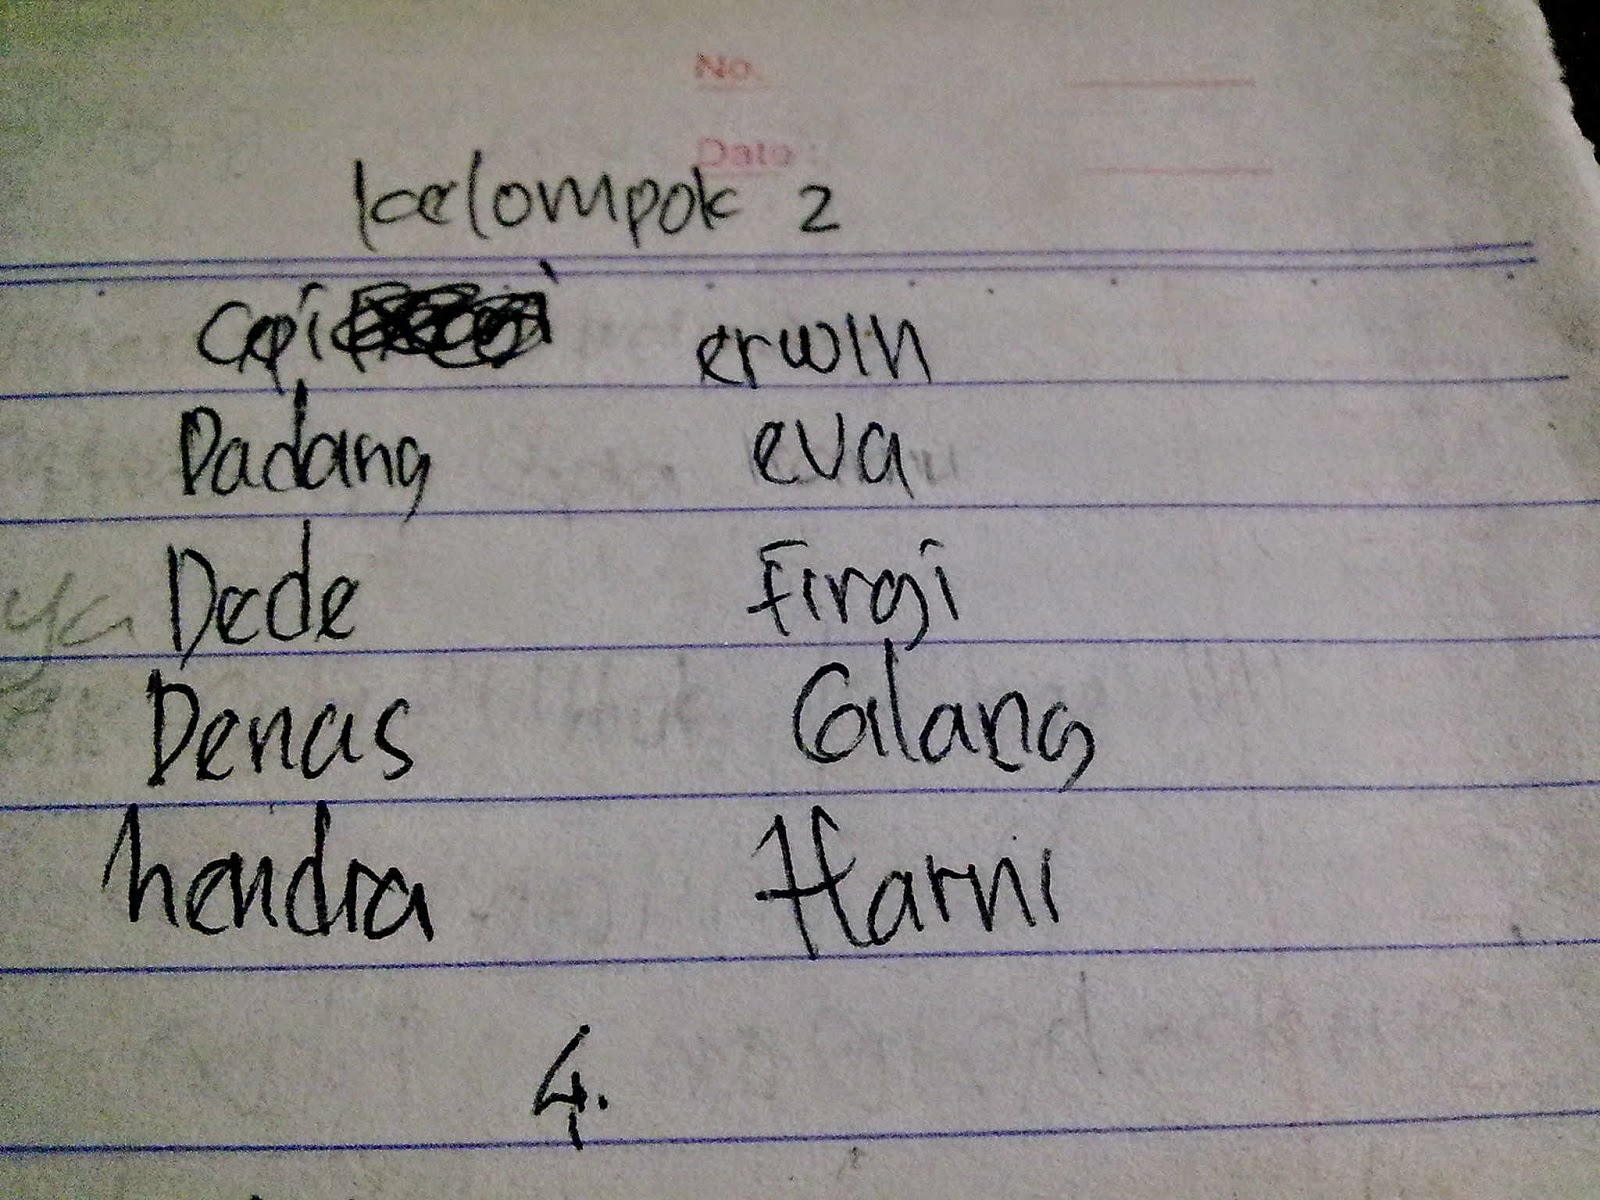 No.
Date :
kelompok 2
Cepi erwin
Dadang eva
Dede Firgi
Denas Galang
hendra Harni
4.